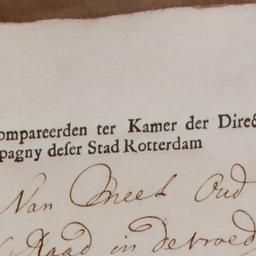 ompareerden ter Kamer der Direc
pagny deser Stad Rotterdam
Van Meel Oud
Raad in de vroed